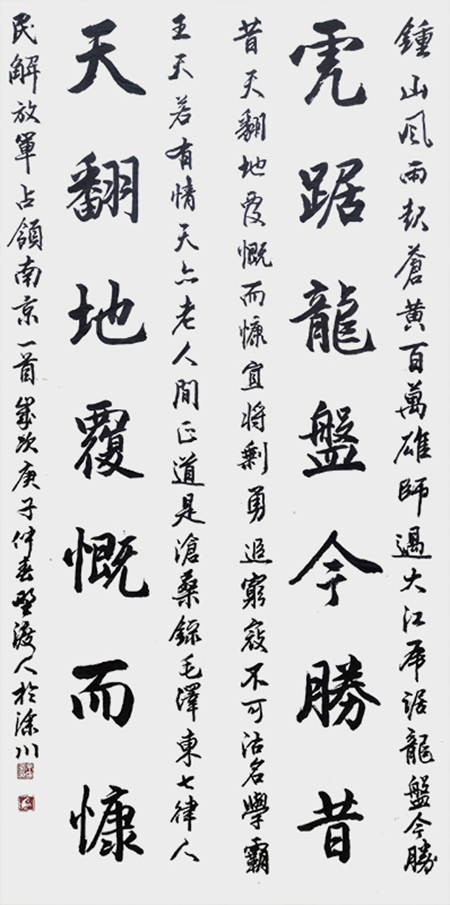 鍾山風雨起蒼黄百萬雄師過大江虎踞龍盤今勝
虎踞龍盤今勝昔
昔天翻地覆慨而慷宜將剩勇追窮寇不可沽名學霸
王天若有情天亦老人間正道是滄桑錄毛澤東七律人
天翻地覆慨而慷
民解放軍占領南京一首歲次庚子仲春野渡人於滁川